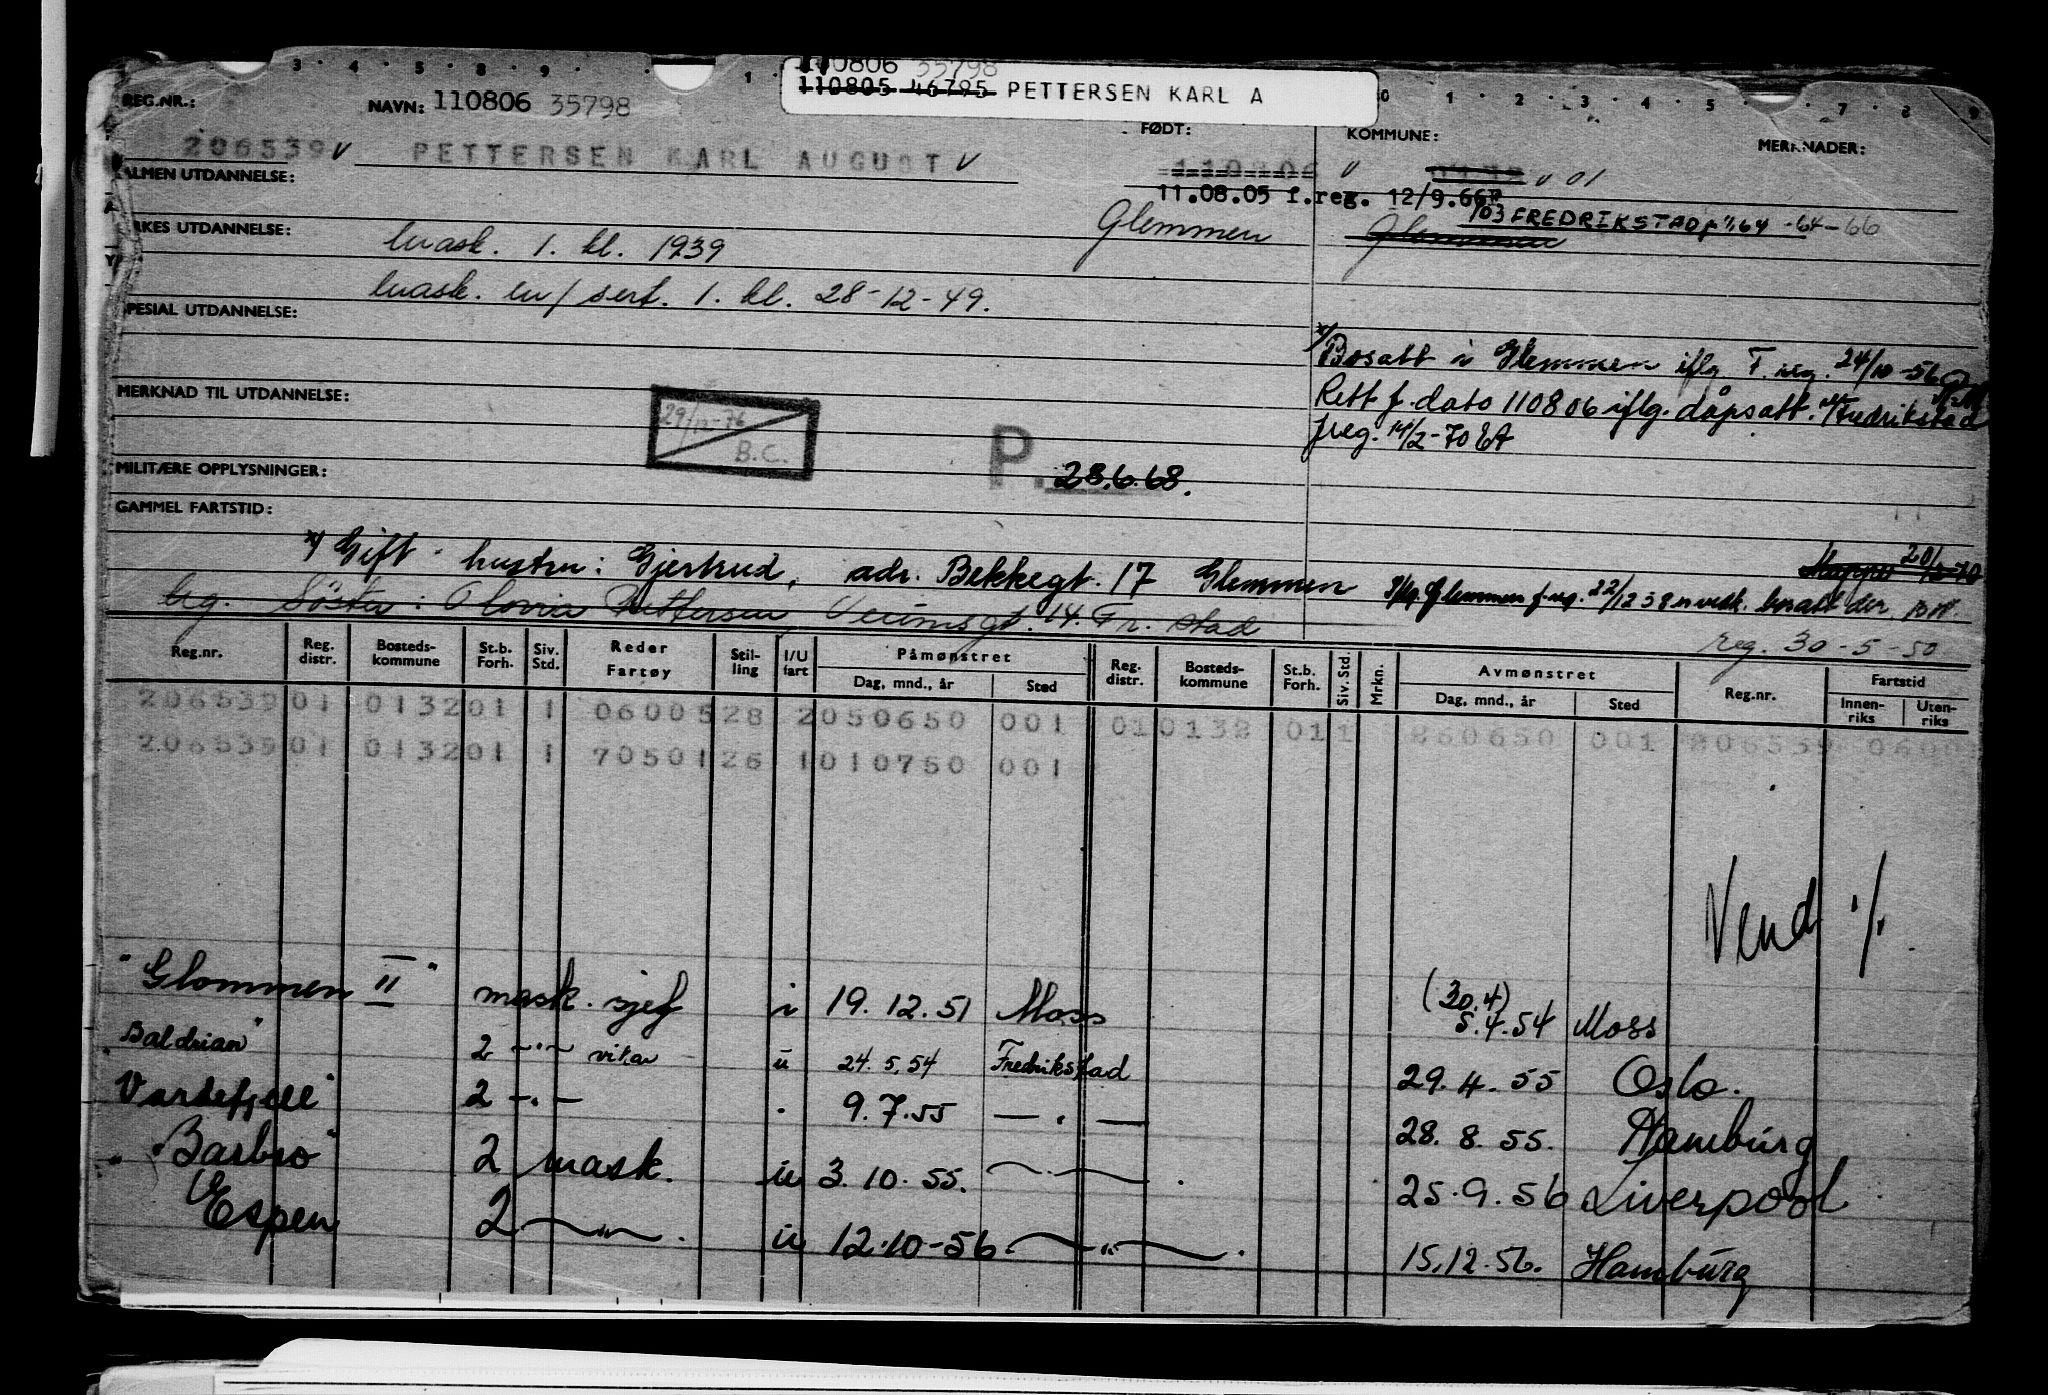 3 4 5 6 8 9 1 0 1 2 3 4 5 7 8 9
110806 35798
110805 46795 PETTERSEN KARL A
REG.NR.: NAVN: 110806 35798 FØDT: KOMMUNE: MERKNADER:
206539 v PETTERSEN KARL AUGUST v 110806 v v 01
ALMEN UTDANNELSE: 11.08.05 f.reg. 12/9.66
103 FREDRIKSTAD 64 -64-66
YRKES UTDANNELSE: mask. 1. kl. 1939 Glemmen Glemmen
mask. m/sert. 1. kl. 28-12-49.
SPESIAL UTDANNELSE:
x/ Bosatt i Glemmen iflg. F. reg. 24/10-56
MERKNAD TIL UTDANNELSE: Rett f. dato 110806 iflg. dåpsatt. Fredrikstad
29/12-76 freg. 14/2-70 EA
B.C.
P. 28.6.68.
MILITÆRE OPPLYSNINGER:
GAMMEL FARTSTID:
x/ Gift - hustru: Gjertrud, adr. Bekkegt. 17 Glemmen
Mappe 20/2-70
Iflg. Glemmen f.reg. 22/12 38 n vedk. bosatt der.
Søster: Pettersen, 14. Fr. stad
reg. 30-5-50
Reg.nr. Reg. distr. Bosteds-kommune St.b. Forh. Siv. Std. Reder Fartøy Stil-ling I/U fart Påmønstret Dag, mnd., år Sted Reg. distr. Bosteds-kommune St.b. Forh. Siv. Std. Mrkn. Avmønstret Dag, mnd., år Sted Reg.nr. Fartstid Innen-riks Uten-riks
206539 01 0132 01 1 06005 28 2 050650 001 01 0132 01 1 260650 001 206539 0600
206539 01 0132 01 1 70501 26 1 010750 001
Vend ./.
"Glommen II" mask. sjef i 19.12.51 Moss (30.4) 5.4.54 Moss
"Baldrian" 2 -"- vikar u 24.5.54 Fredrikstad 29.4.55 Oslo.
"Vardefjell" 2 -"- 9.7.55 -"- 28.8.55. Hamburg
"Barbro" 2 mask. u 3.10.55. -"- 25.9.56 Liverpool
"Espen 2 -"- u 12.10-56 -"- 15.12.56. Hamburg